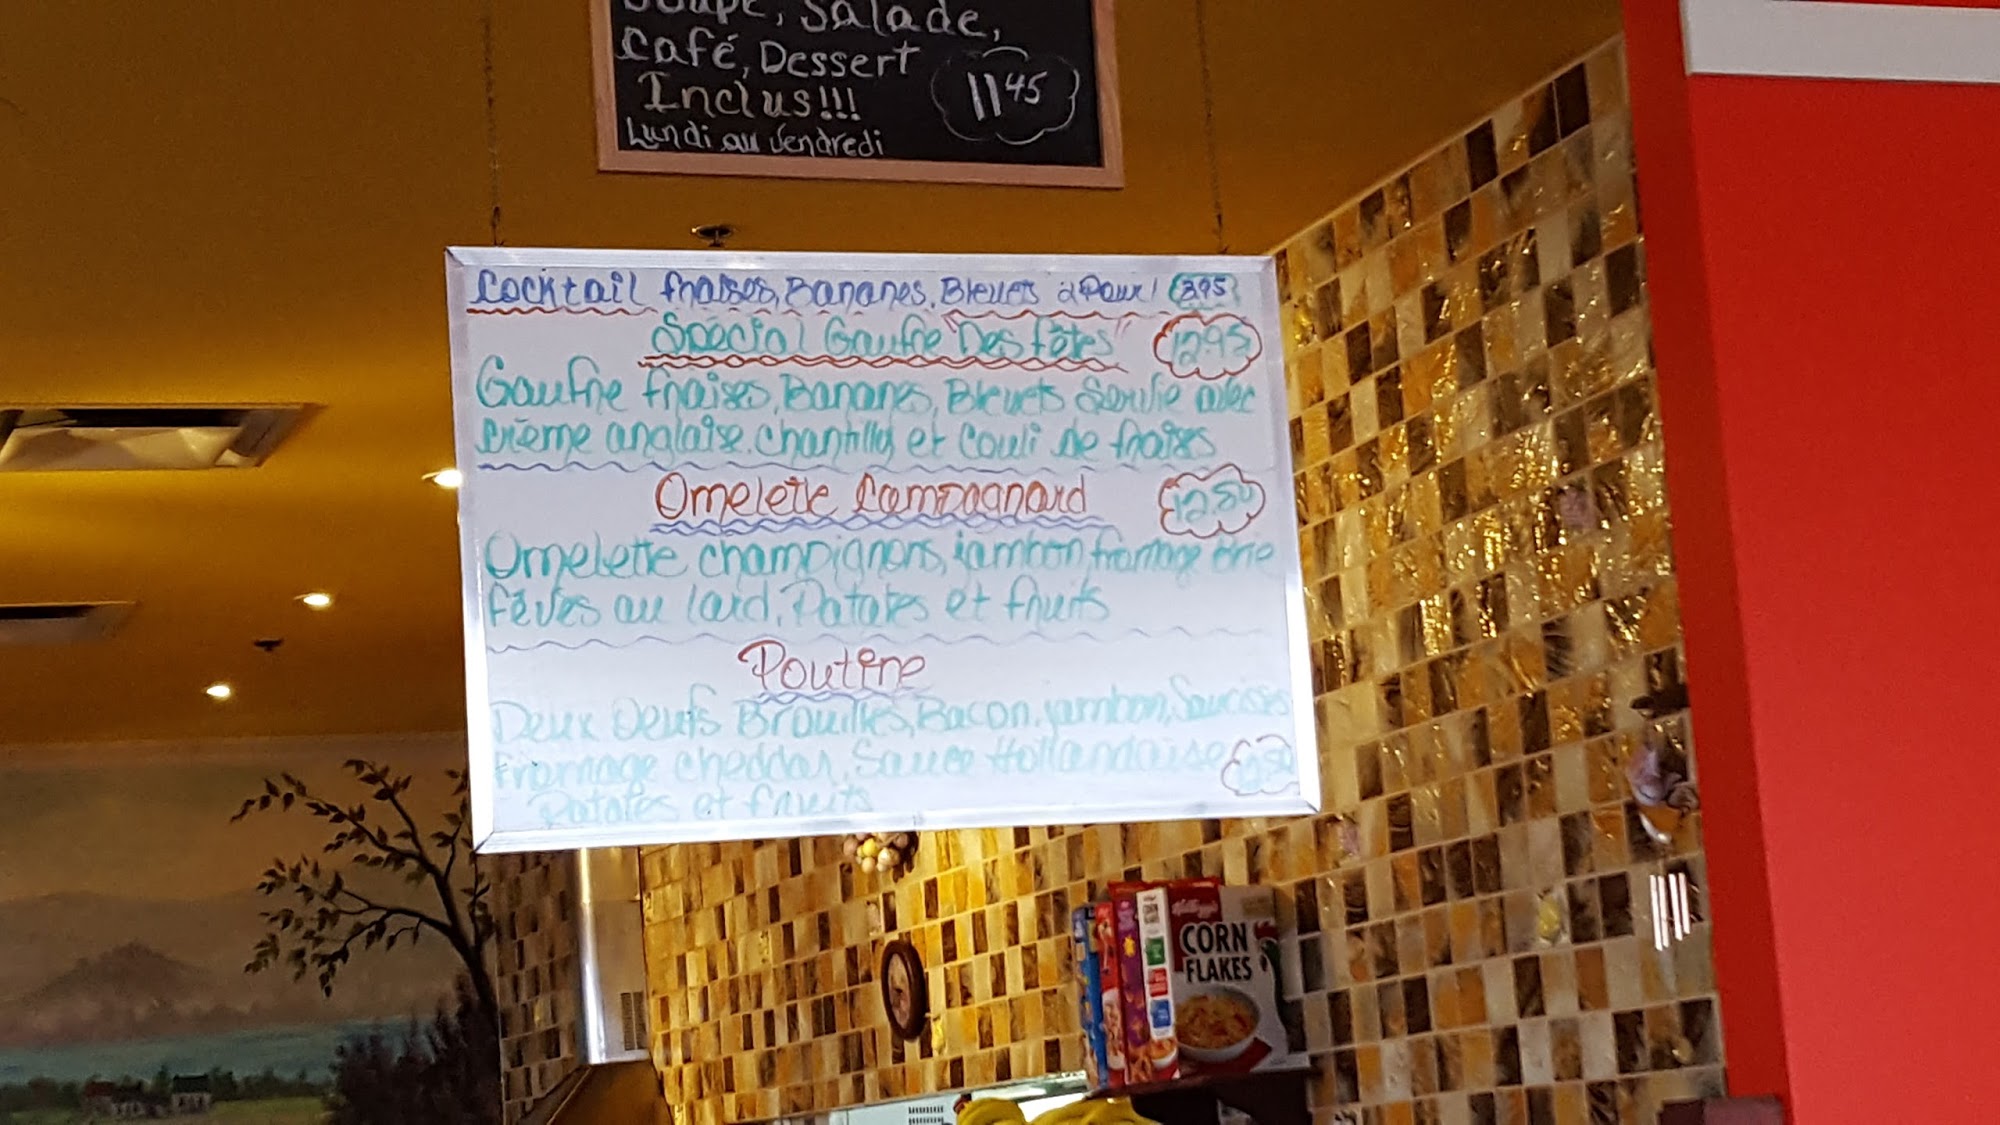 Soupe, Salade,
Café, Dessert
Inclus!!! 11 45
Lundi au Vendredi
Cocktail fraises, Bananes, Bleuets 3.95
Spécial Gaufre "Des fêtes" 12.95
Gaufre fraises, Bananes, Bleuets Servie avec
crème anglaise, Chantilly et Couli de fraises
Omelette Campagnard 12.50
Omelette champignons, jambon, fromage brie
fêves au lard, Patates et fruits
Poutine
Deux Oeufs Brouillés, Bacon, jambon, Saucisses
fromage cheddar, Sauce Hollandaise
Patates et fruits
Kellogg's
CORN
FLAKES